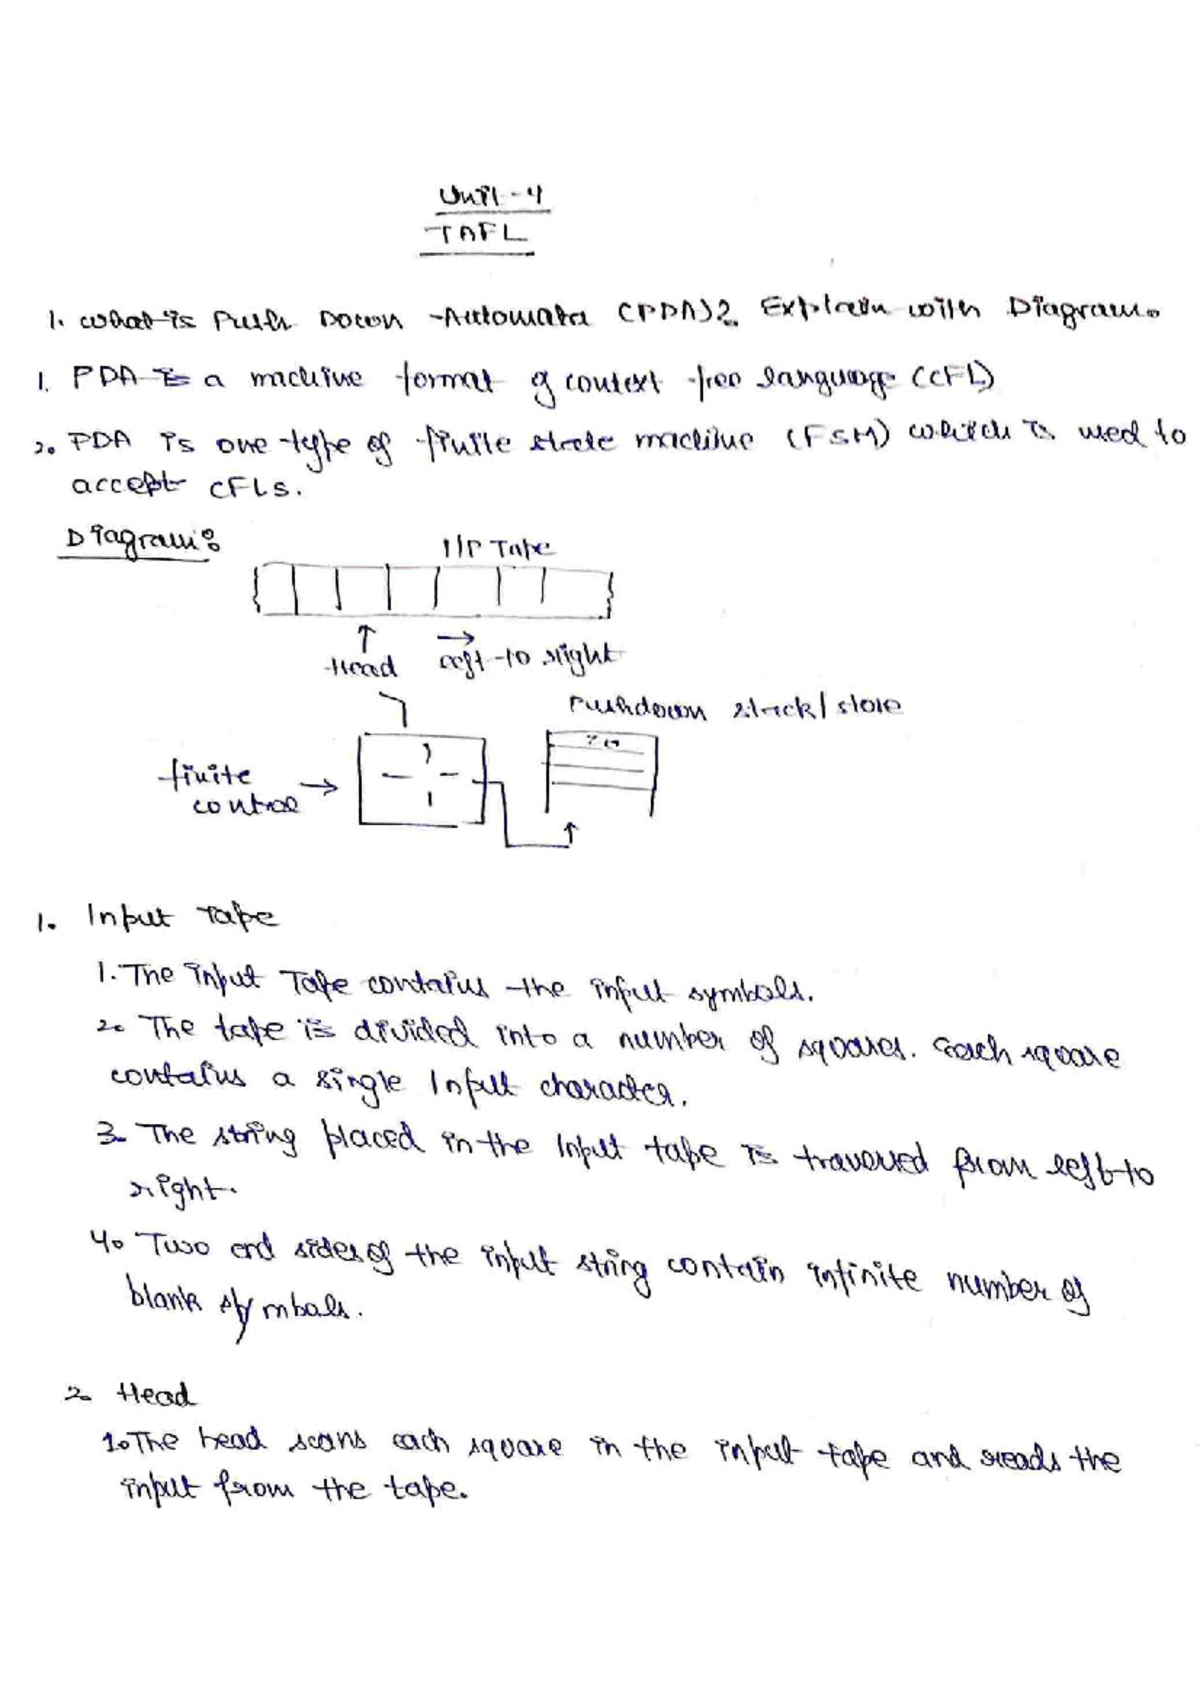 Unit-4
TAFL
1. What is Push Down Automata (PDA)? Explain with Diagram.
1. PDA is a machine format of context free language (CFL)
2. PDA is one type of finite state machine (FSM) which is used to
accept CFLs.
Diagram:
I/P Tape
Head left to right
Pushdown stack/store
Z0
finite
control
1. Input Tape
1. The input Tape contains the input symbols.
2. The tape is divided into a number of squares. Each square
contains a single Input character.
3. The string placed in the Input tape is traversed from left to
right.
4. Two end sides of the input string contain infinite number of
blank symbols.
2. Head
1. The head scans each square in the input tape and reads the
input from the tape.